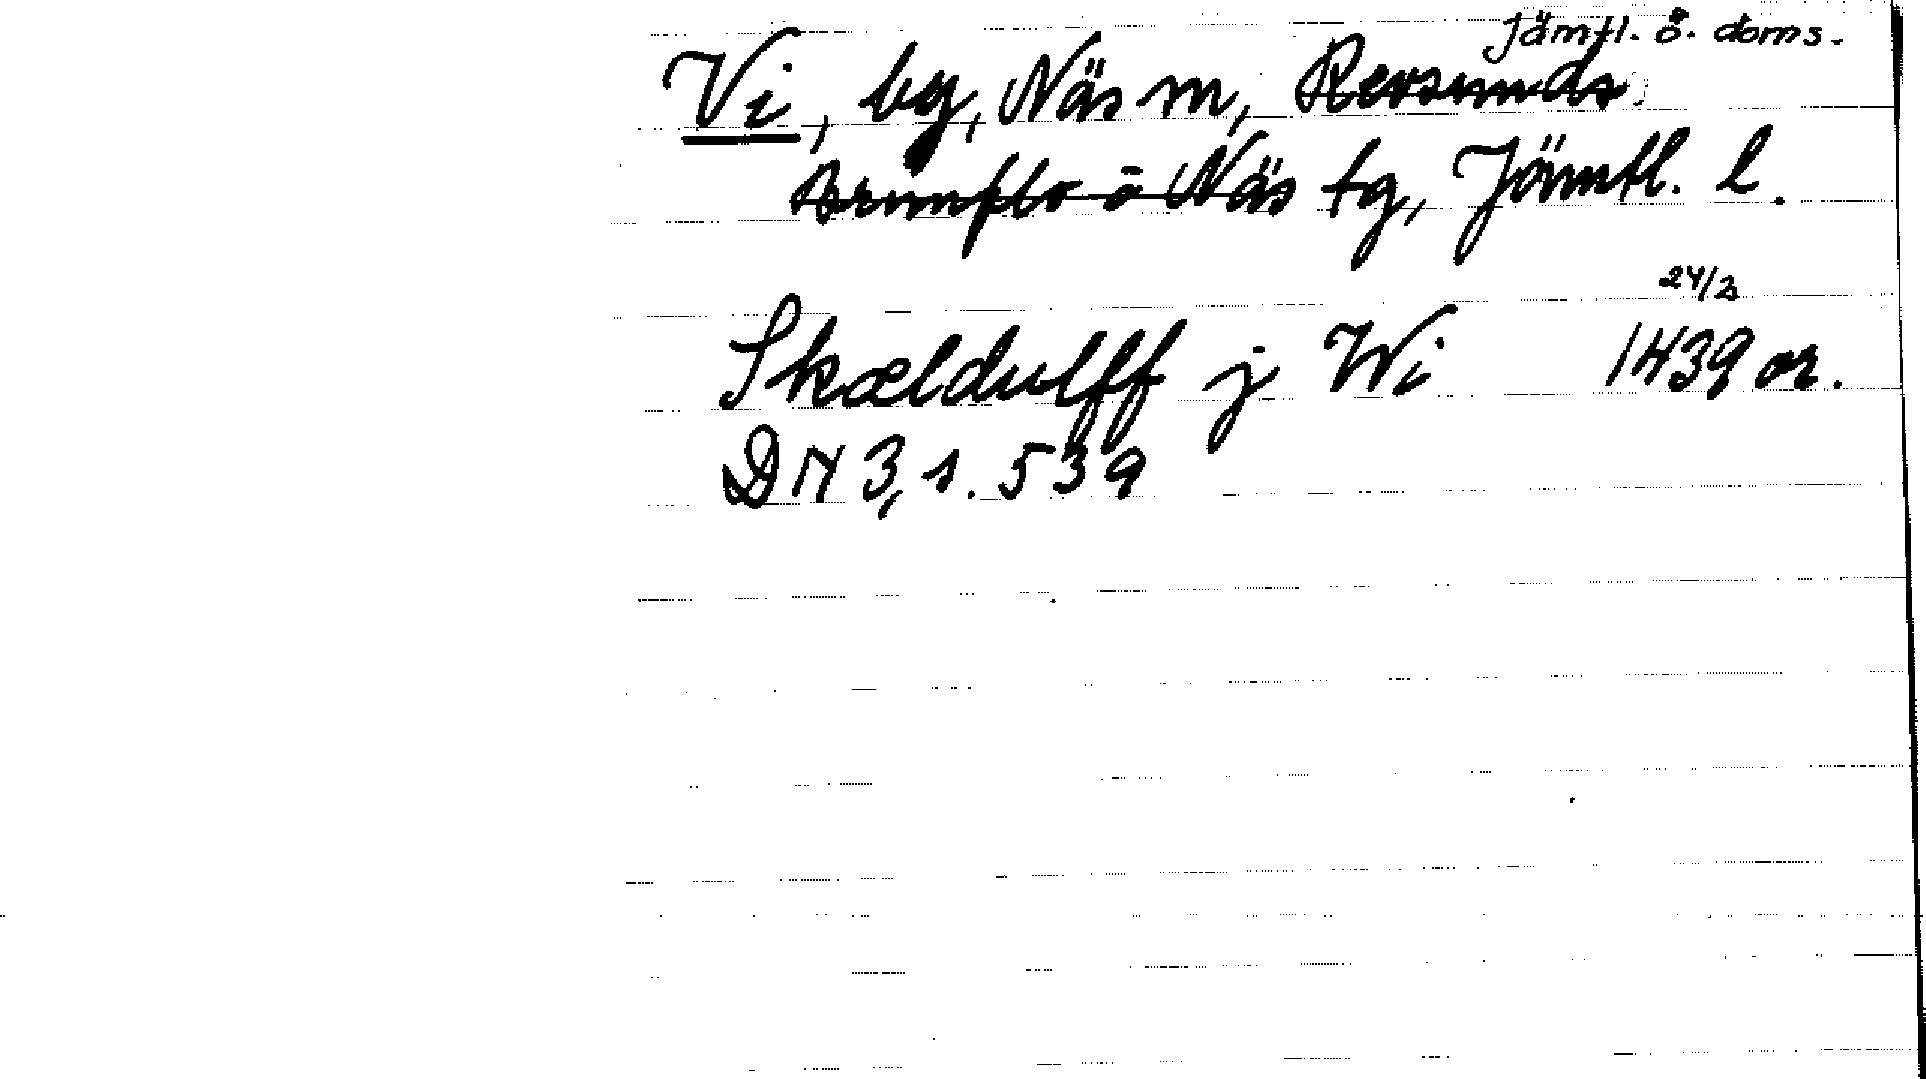 Jämtl. ö. doms.
Vi, by, Näs m, Revsunds
Brunflo o Näs tg, Jämtl. l.
24/2
Skældulff j Wi 1439 or.
DN 3, s. 539